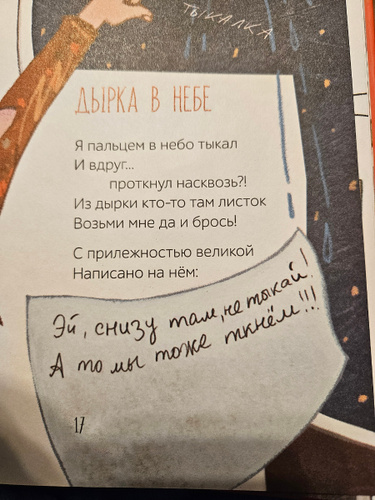 ТЫКАЛКА
ДЫРКА В НЕБЕ
Я пальцем в небо тыкал
И вдруг...
проткнул насквозь?!
Из дырки кто-то там листок
Возьми мне да и брось!
С прилежностью великой
Написано на нём:
Эй, снизу там, не тыкай!
А то мы тоже ткнём!!!
17